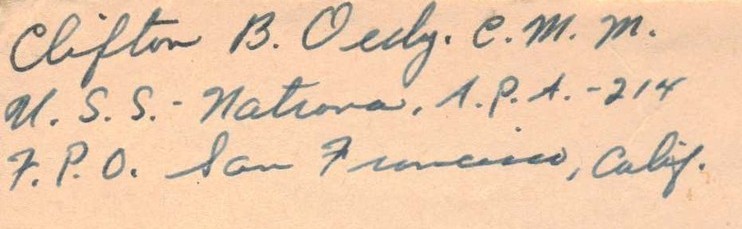 Clifton B. Oedy. C. M. M.
U. S. S. - Natrona, A. P. A. - 214
F. P. O. San Francisco, Calif.